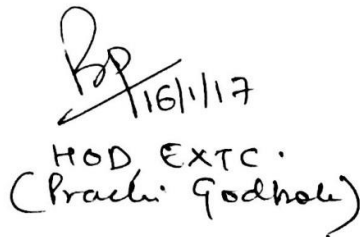 16/1/17
HOD, EXTC.
(Prachi Godbole)